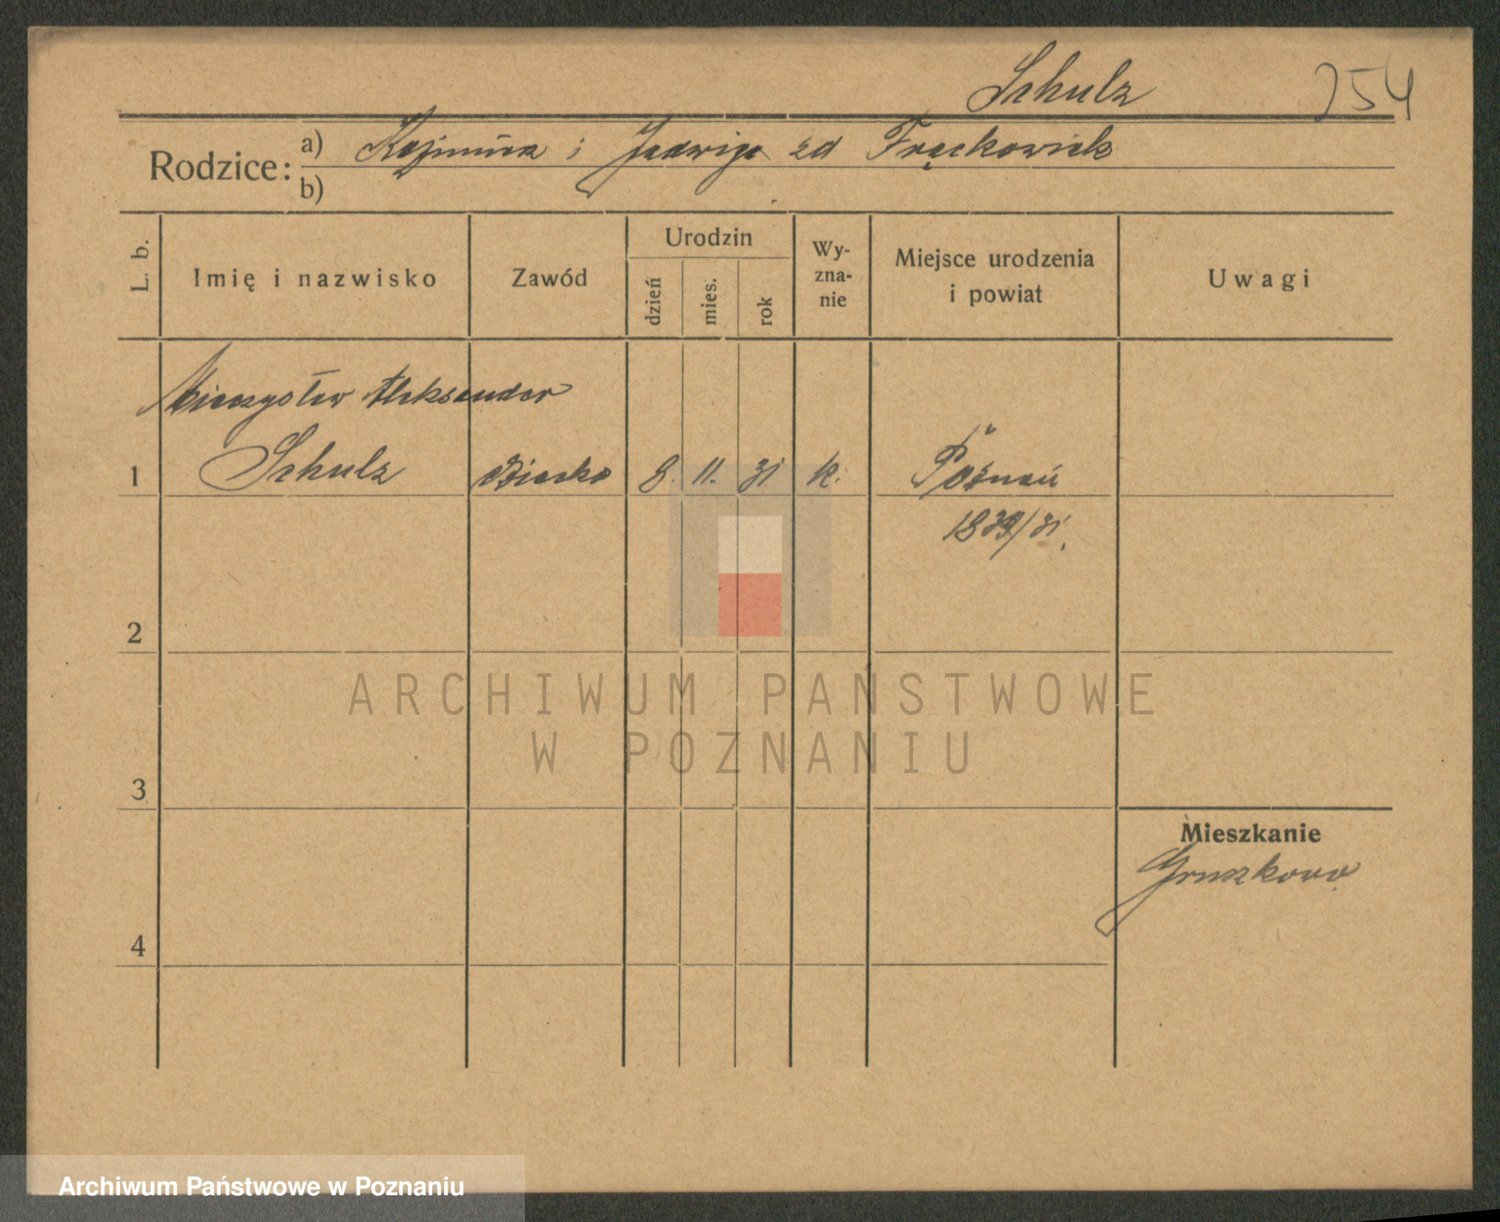 Schulz 254
Rodzice: a) Kazimierz i Jadwiga zd Frąckowiak
b)
L. b. Imię i nazwisko Zawód Urodzin dzień mies. rok Wy-zna-nie Miejsce urodzenia i powiat Uwagi
Mieczysław Aleksander
1 Schulz Dziecko 8. 11. 31 k. Poznań
1839/31.
2
ARCHIWUM PAŃSTWOWE
W POZNANIU
3
Mieszkanie
Gruszkowa
4
Archiwum Państwowe w Poznaniu